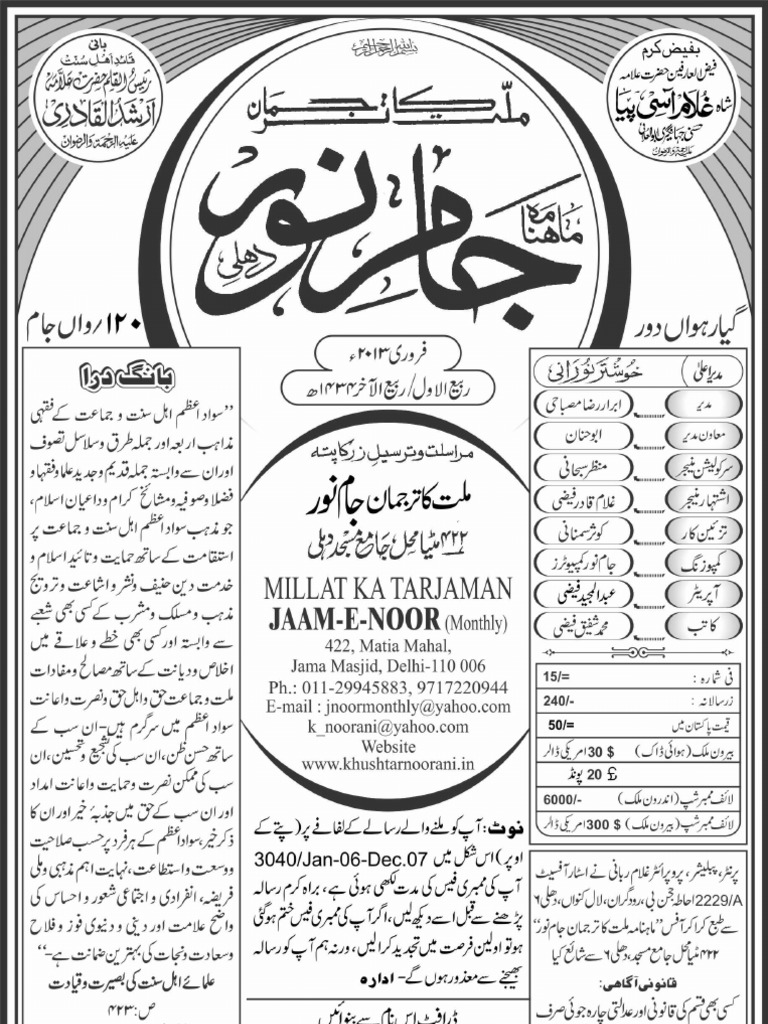 بفیض کرم
فیض العارفین حضرت علامہ
شاہ غلام آسی پیا
بانی
قائد اہل سنت
رئیس القلم حضرت علامہ
ارشد القادری
علیہ الرحمۃ والرضوان
ملت کا ترجمان
ماہنامہ
جام نور
دہلی
گیارہواں دور
۱۲۰/واں جام
فروری ۲۰۱۳ء
ربیع الاول/ربیع الآخر ۱۴۳۴ھ
مدیر اعلیٰ خوشتر نورانی
مدیر ابرار رضا مصباحی
معاون مدیر ابوحنان
سرکولیشن منیجر منظر سبحانی
اشتہار منیجر غلام قادر فیضی
تزئین کار کوثر سمنانی
کمپوزنگ جام نور کمپیوٹرز
آپریٹر عبدالمجید فیضی
کاتب محمد شفیق فیضی
فی شمارہ : 15/=
زرسالانہ : 240/-
قیمت پاکستان میں 50/=
بیرون ملک (ہوائی ڈاک) $ 30 امریکی ڈالر
£ 20 پونڈ
لائف ممبرشپ (اندرون ملک) 6000/-
لائف ممبرشپ (بیرون ملک) $ 300 امریکی ڈالر
پرنٹر، پبلیشر، پروپرائٹر غلام ربانی نے اسٹار آفسیٹ
2229/A احاطہ حجن بی، رودگران، لال کنواں، دہلی ۶
سے طبع کرا کر آفس ’’ماہنامہ ملت کا ترجمان جام نور‘‘
۴۲۲ مٹیا محل جامع مسجد، دہلی ۶ سے شائع کیا
قانونی آگاہی:
کسی بھی قسم کی قانونی اور عدالتی چارہ جوئی صرف
مراسلت و ترسیل زر کا پتہ
ملت کا ترجمان جام نور
۴۲۲ مٹیا محل، جامع مسجد دہلی
MILLAT KA TARJAMAN
JAAM-E-NOOR (Monthly)
422, Matia Mahal,
Jama Masjid, Delhi-110 006
Ph.: 011-29945883, 9717220944
E-mail : jnoormonthly@yahoo.com
k_noorani@yahoo.com
Website
www.khushtarnoorani.in
نوٹ: آپ کو ملنے والے رسالے کے لفافے پر (پتے کے
اوپر) اس شکل میں 3040/Jan-06-Dec.07
آپ کی ممبری فیس کی مدت لکھی ہوئی ہے، براہ کرم رسالہ
پڑھنے سے قبل اسے دیکھ لیں، اگر آپ کی ممبری فیس ختم ہوگئی
ہو تو اولین فرصت میں تجدید کرالیں، ورنہ ہم آپ کو رسالہ
بھیجنے سے معذور ہوں گے۔ ادارہ
ڈرافٹ اس نام سے بنوائیں
بانگ درا
’’سواد اعظم اہل سنت و جماعت کے فقہی
مذاہب اربعہ اور جملہ طرق و سلاسل تصوف
اور ان سے وابستہ جملہ قدیم و جدید علما و فقہا و
فضلا و صوفیہ و مشائخ کرام و داعیان اسلام،
جو مذہب سواد اعظم اہل سنت و جماعت پر
استقامت کے ساتھ حمایت و تائید اسلام و
خدمت دین حنیف و نشر و اشاعت و ترویج
مذہب و مسلک و مشرب کے کسی بھی شعبے
سے وابستہ اور کسی بھی خطے و علاقے میں
اخلاص و دیانت کے ساتھ مصالح و مفادات
ملت و جماعت حق و اہل حق و نصرت و اعانت
سواد اعظم میں سرگرم ہیں۔ ان سب کے
ساتھ حسن ظن، ان سب کی تشجیع و تحسین، ان
سب کی ممکن نصرت و حمایت و اعانت امداد
اور ان سب کے حق میں جذبۂ خیر اور ان کا
ذکر خیر، سواد اعظم کے ہر فرد پر حسب صلاحیت
و وسعت و استطاعت، نہایت اہم مذہبی و ملی
فریضہ، انفرادی و اجتماعی شعور و احساس کی
واضح علامت اور دینی و دنیوی فوز و فلاح
و سعادت و نجات کی بہترین ضمانت ہے۔‘‘
علمائے اہل سنت کی بصیرت و قیادت
ص:۴۲۳